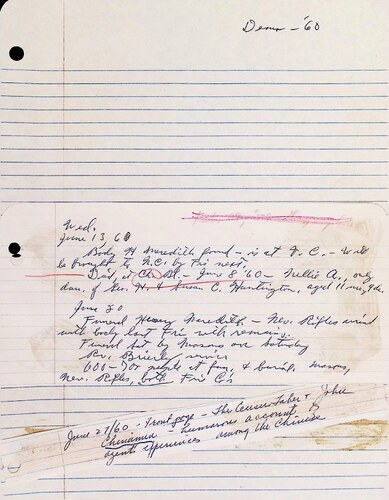 Demo - '60
Wed.
June 13, 60
Body H Meredith found - is at V. C. - Will
be brought to N.C. by Fri next.
Died, at Ch. St. - June 8 '60 - Nellie A., only
dau. of Geo. H. & Susan C. Huntington, aged 11 mo, 9 ds.
June 20
Funeral Henry Meredith - Nev. Rifles arrived
with body last Fri with remains.
Funeral set by Masons on Saturday
Rv. Brierly, service
600 - 700 people at fun. & burial, masons,
Nev. Rifles, both Fire Co's
June 27/60 - Front page - The Census Taker & John
Chinaman - humorous account of
agents experiences among the Chinese